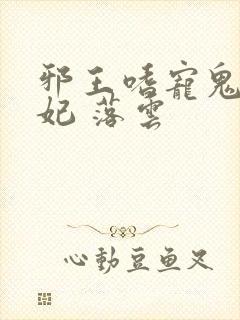 邪王嗜寵鬼
妃 落雲
心動豆魚又